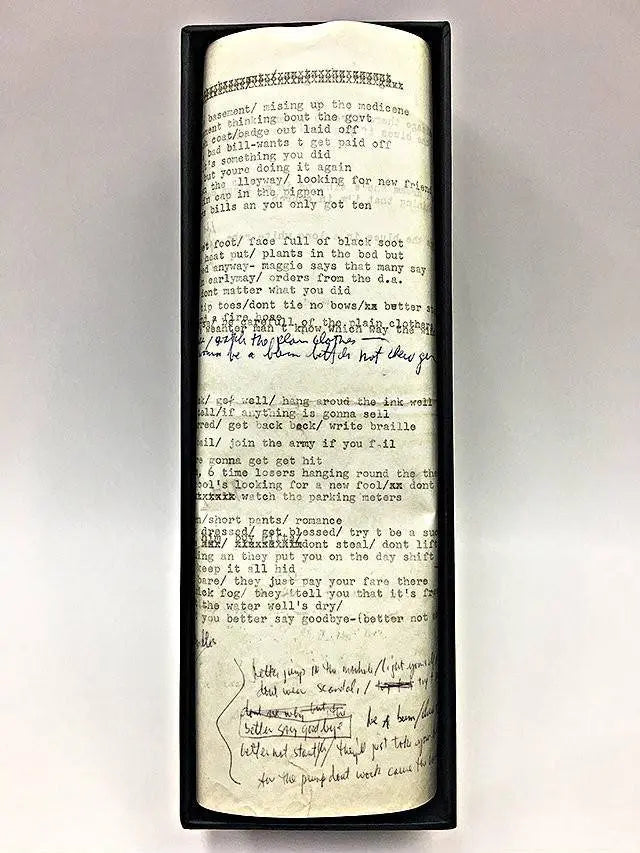 basement/ mising up the medicene
ment thinking bout the govt
coat/badge out laid off
bad bill-wants t get paid off
's something you did
but youre doing it again
the lleyway/ looking for new friend
n cap in the pigpen
bills an you only got ten
t foot/ face full of black soot
heat put/ plants in the bed but
d anyway- maggie says that many say
earlymay/ orders from the d.a.
dont matter what you did
tip toes/dont tie no bows/xx better st
a fire hose
be carefull of the plain clothes
weather man t know which way the
/ watch the plain clothes
be a bum not chew gu
k/ get well/ hang aroud the ink well
tell/if anything is gonna sell
red/ get back beck/ write braille
ail/ join the army if you f il
re gonna get get hit
, 6 time losers hanging round the the
ool's looking for a new fool/xx dont
xxxxxix watch the parking meters
n/short pants/ romance
dressed/ get blessed/ try t be a suc
him, buy gifts/
xxx/ dont steal/ dont lift
ing an they put you on the day shift
keep it all hid
bare/ they just pay your fare there
ick fog/ they itell you that it's fre
the water well's dry/
you better say goodbye-(better not
better jump in the manhole/ light your
dont wear scandal,/ try t
better say goodbye
be A bum/
better not start/ they'll just take your
for the pump dont work cause the